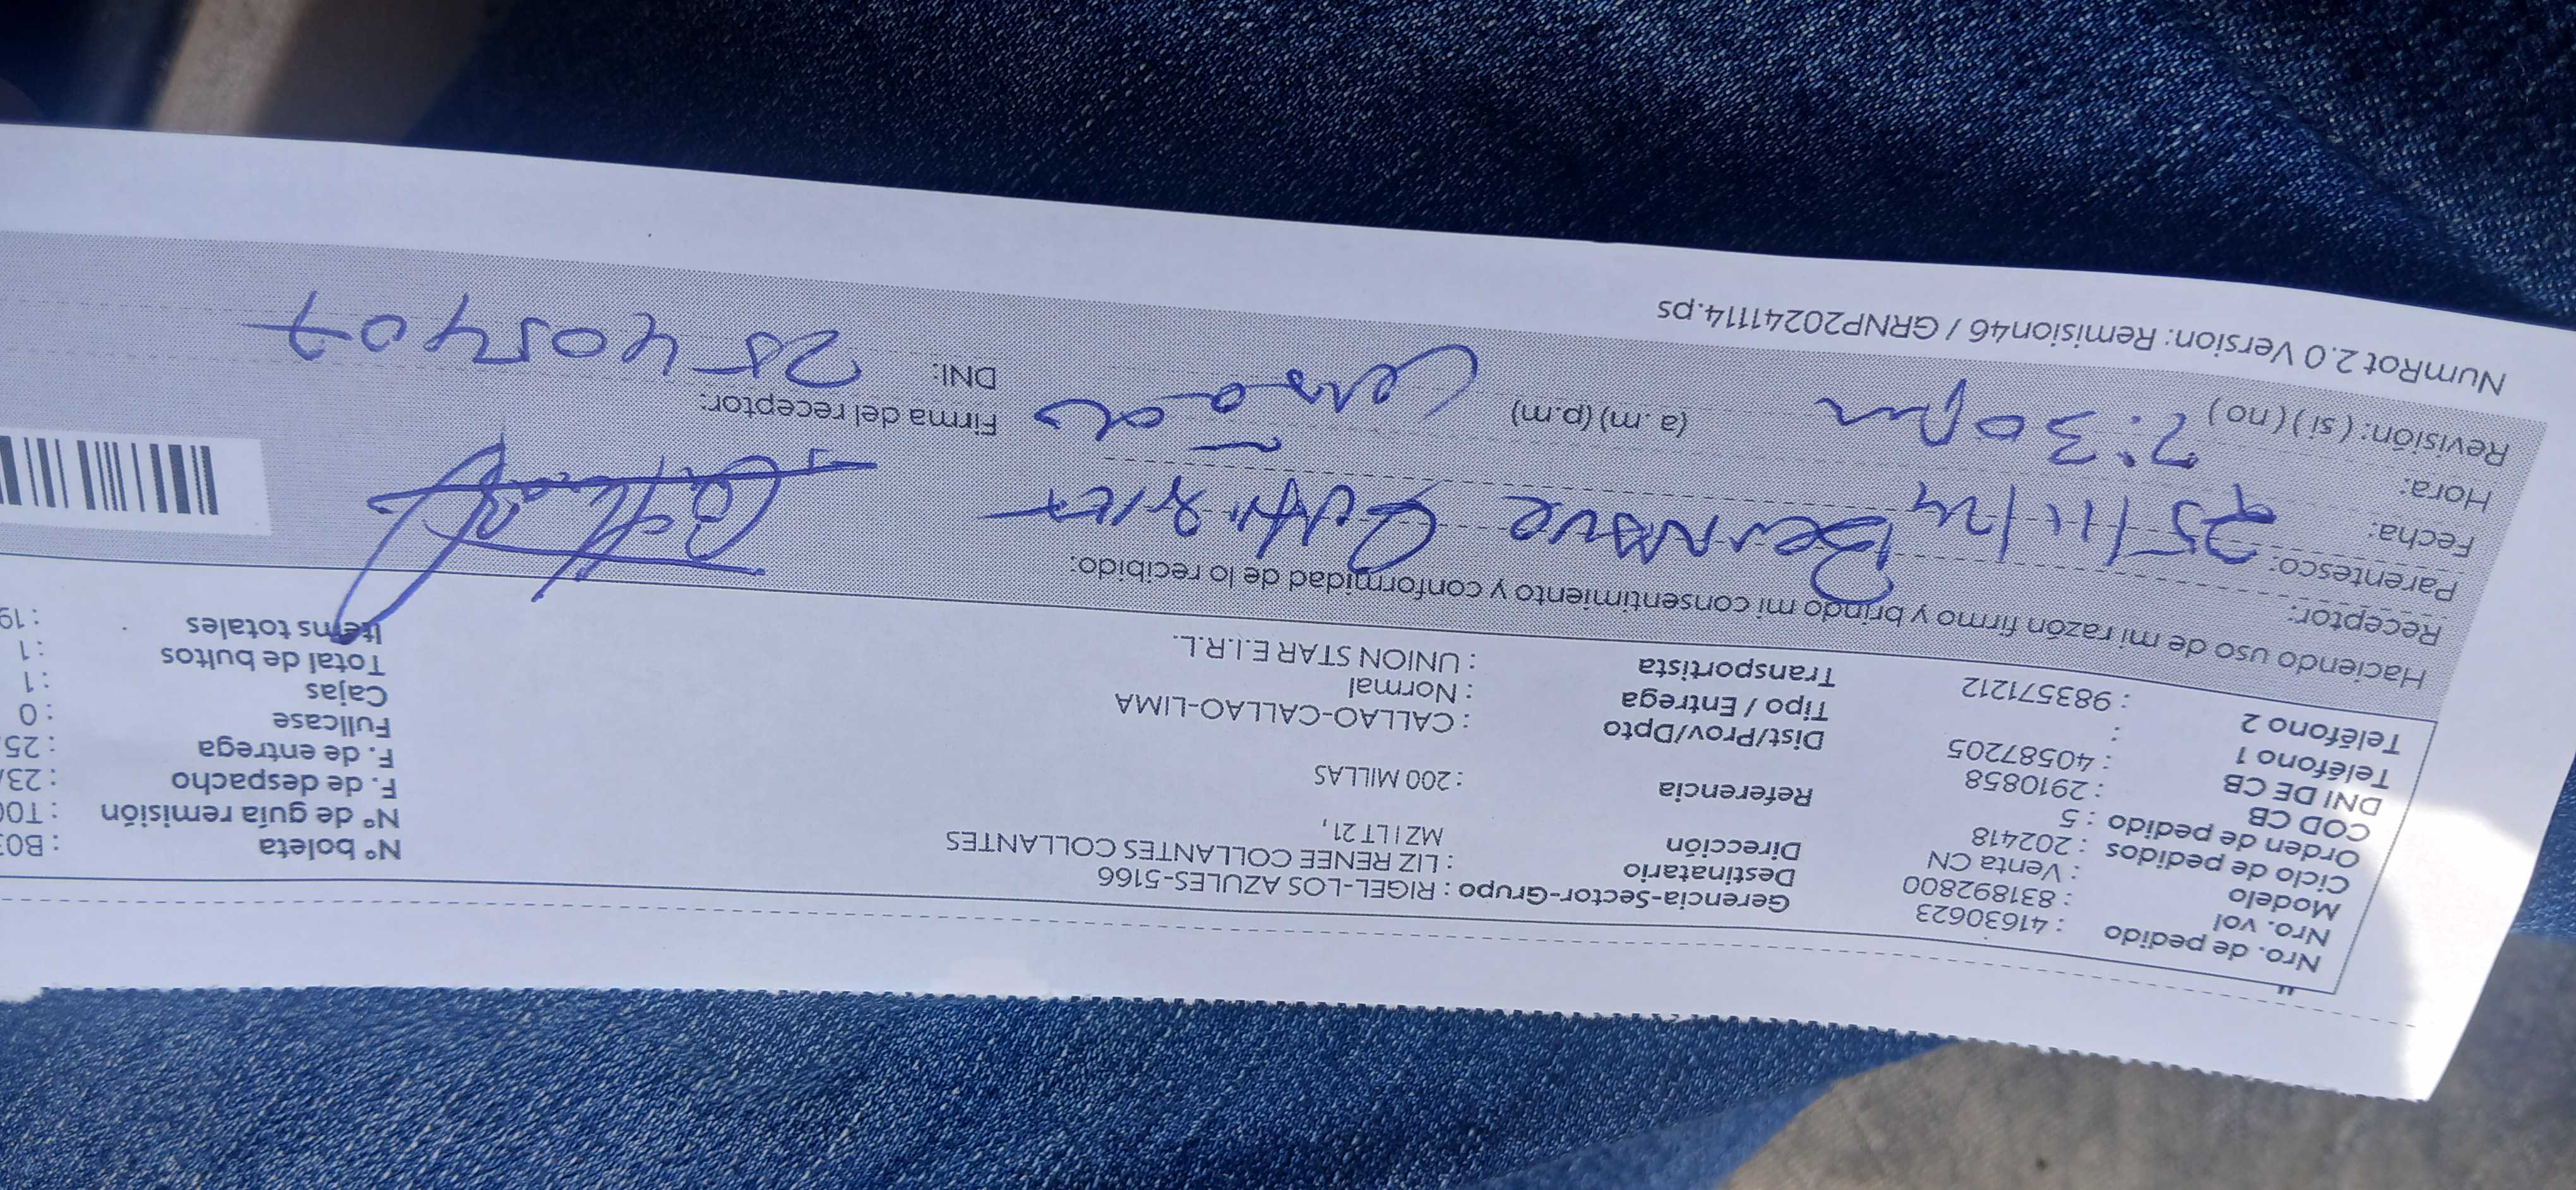 Nro. de pedido : 41630623
Nro. vol : 831892800
Modelo : Venta CN
Ciclo de pedidos : 202418
Orden de pedido : 5
COD CB : 2910858
DNI DE CB : 40587205
Teléfono 1 :
Teléfono 2 : 983571212
Gerencia-Sector-Grupo : RIGEL-LOS AZULES-5166
Destinatario : LIZ RENEE COLLANTES COLLANTES
Dirección MZ I LT 21,
Referencia : 200 MILLAS
Dist/Prov/Dpto : CALLAO-CALLAO-LIMA
Tipo / Entrega : Normal
Transportista : UNION STAR E.I.R.L.
Nº boleta : B03
Nº de guía remisión : T00
F. de despacho : 23/
F. de entrega : 25
Fullcase : 0
Cajas : 1
Total de bultos : 1
Items totales : 19
Haciendo uso de mi razón firmo y brindo mi consentimiento y conformidad de lo recibido:
Receptor:
Parentesco:
Fecha: 25/11/24
Hora: 2:30 pm (a .m) (p.m)
Revisión: ( si ) ( no )
Firma del receptor:
DNI: 25405407
NumRot 2.0 Version: Remision46 / GRNP20241114.ps